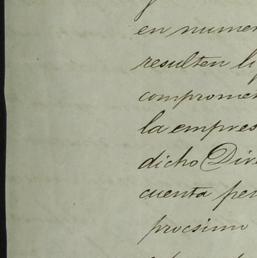 en numer
resulten li
comprome
la empres
dicho Dir
cuenta per
procsimo